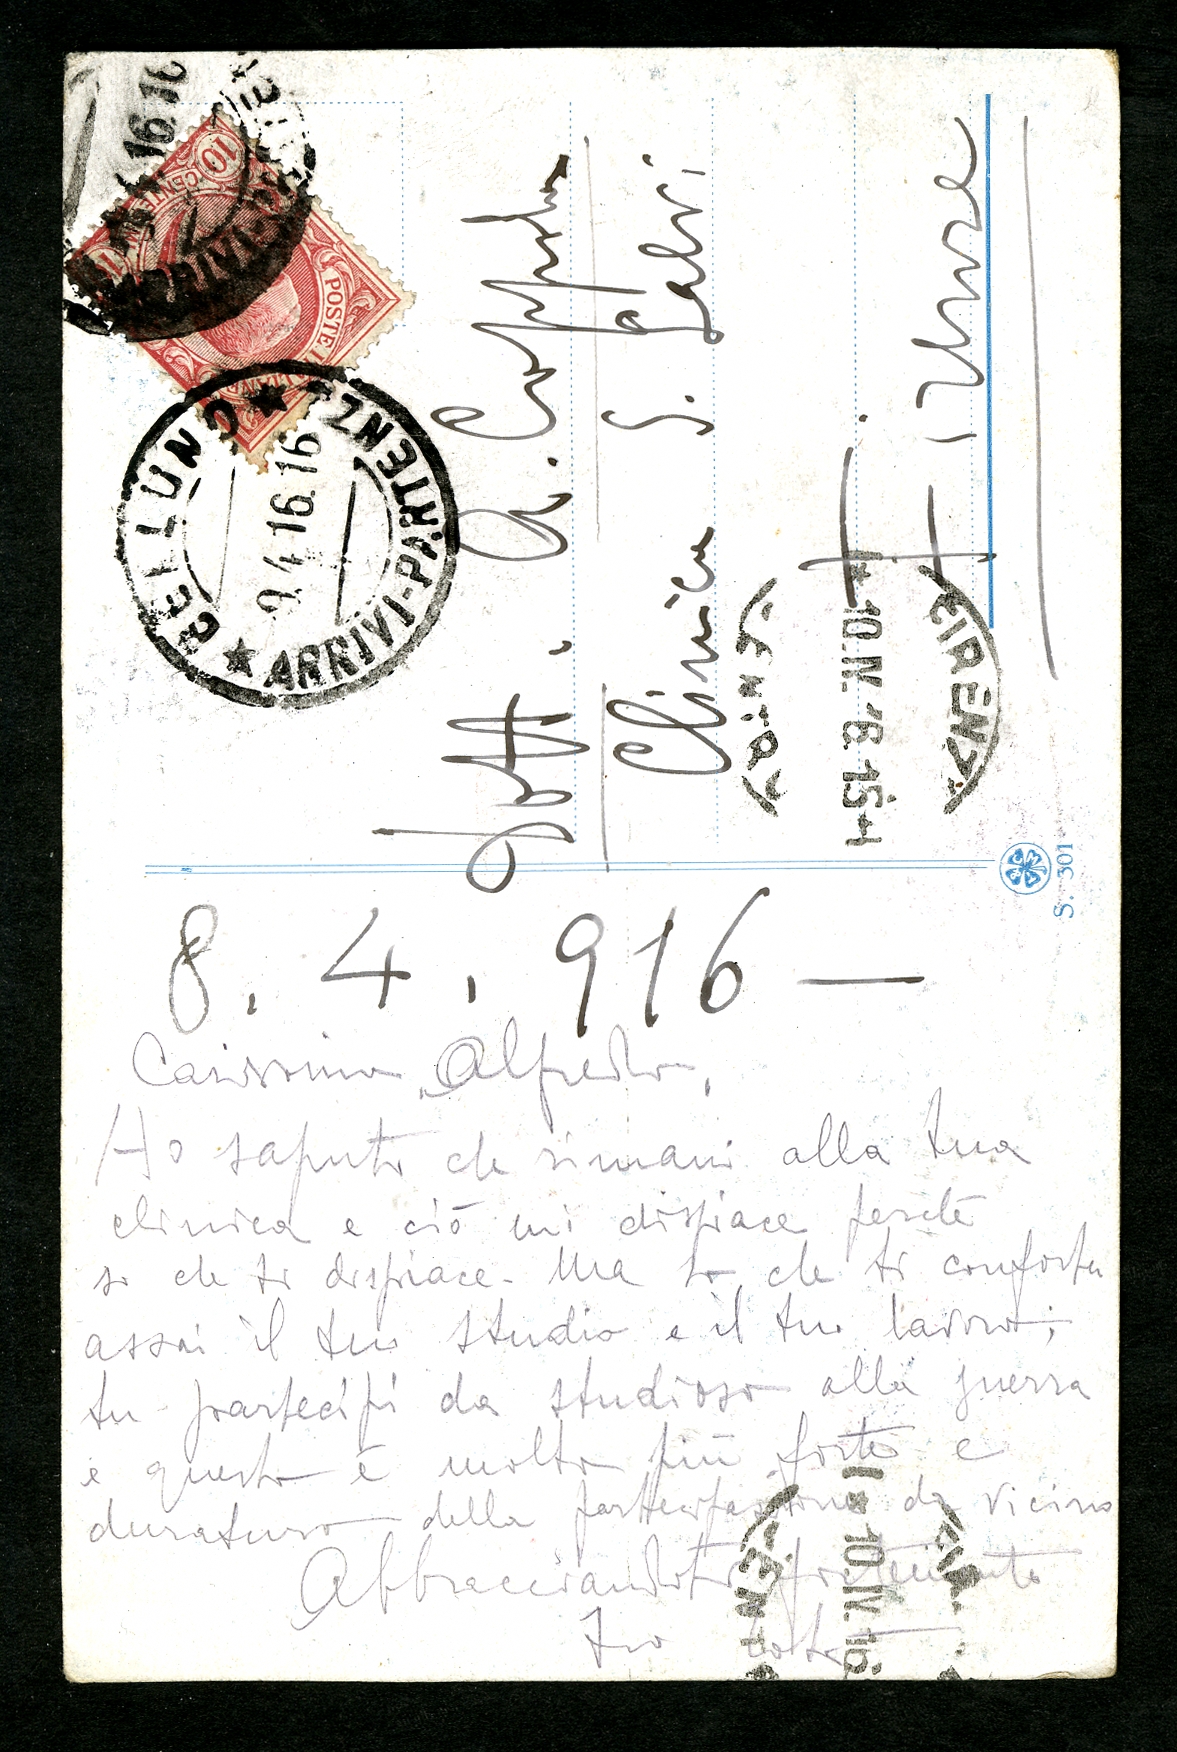 8. 4. 916 —
Carissimo Alfredo,
Ho saputo che rimani alla tua
clinica e ciò mi dispiace perché
so che ti dispiace. Ma so che ti conforta
assai il tuo studio e il tuo lavoro;
tu partecipi da studioso alla guerra
e questo è molto più forte e
duraturo della partecipazione da vicino
Abbracciandoti fortemente
tuo
Dott. A. Coppola
Clinica S. Salvi
Firenze
10 CENTESIMI 10
POSTE ITALIANE
BELLUNO
9.4.16.16
ARRIVI-PARTENZ
16.16
FIRENZE
10.IV.16.15
FIRENZE
10.IV.16
S. 301